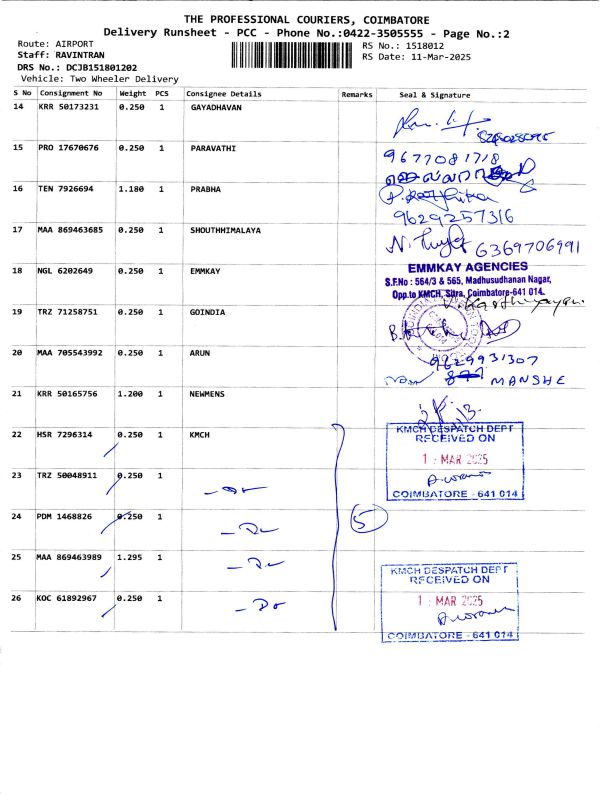 THE PROFESSIONAL COURIERS, COIMBATORE
Delivery Runsheet - PCC - Phone No.:0422-3505555 - Page No.:2
Route: AIRPORT
RS No.: 1518012
Staff: RAVINTRAN
RS Date: 11-Mar-2025
DRS No.: DCJB151801202
Vehicle: Two Wheeler Delivery
S No Consignment No Weight PCS Consignee Details Remarks Seal & Signature
14 KRR 50173231 0.250 1 GAYADHAVAN
15 PRO 17670676 0.250 1 PARAVATHI 9677081718
16 TEN 7926694 1.180 1 PRABHA
9629257316
17 MAA 869463685 0.250 1 SHOUTHHIMALAYA 6369706991
18 NGL 6202649 0.250 1 EMMKAY EMMKAY AGENCIES
S.F.No : 564/3 & 565, Madhusudhanan Nagar,
Opp.to KMCH, Sitra, Coimbatore-641 014.
19 TRZ 71258751 0.250 1 GOINDIA
20 MAA 705543992 0.250 1 ARUN 9629931307
MANSHE
21 KRR 50165756 1.200 1 NEWMENS
22 HSR 7296314 0.250 1 KMCH KMCH DESPATCH DEPT
RECEIVED ON
1 MAR 2025
COIMBATORE - 641 014
23 TRZ 50048911 0.250 1 - Do
24 PDM 1468826 0.250 1 - Do 5
25 MAA 869463989 1.295 1 - Do
26 KOC 61892967 0.250 1 - Do
KMCH DESPATCH DEPT
RECEIVED ON
1 MAR 2025
COIMBATORE - 641 014